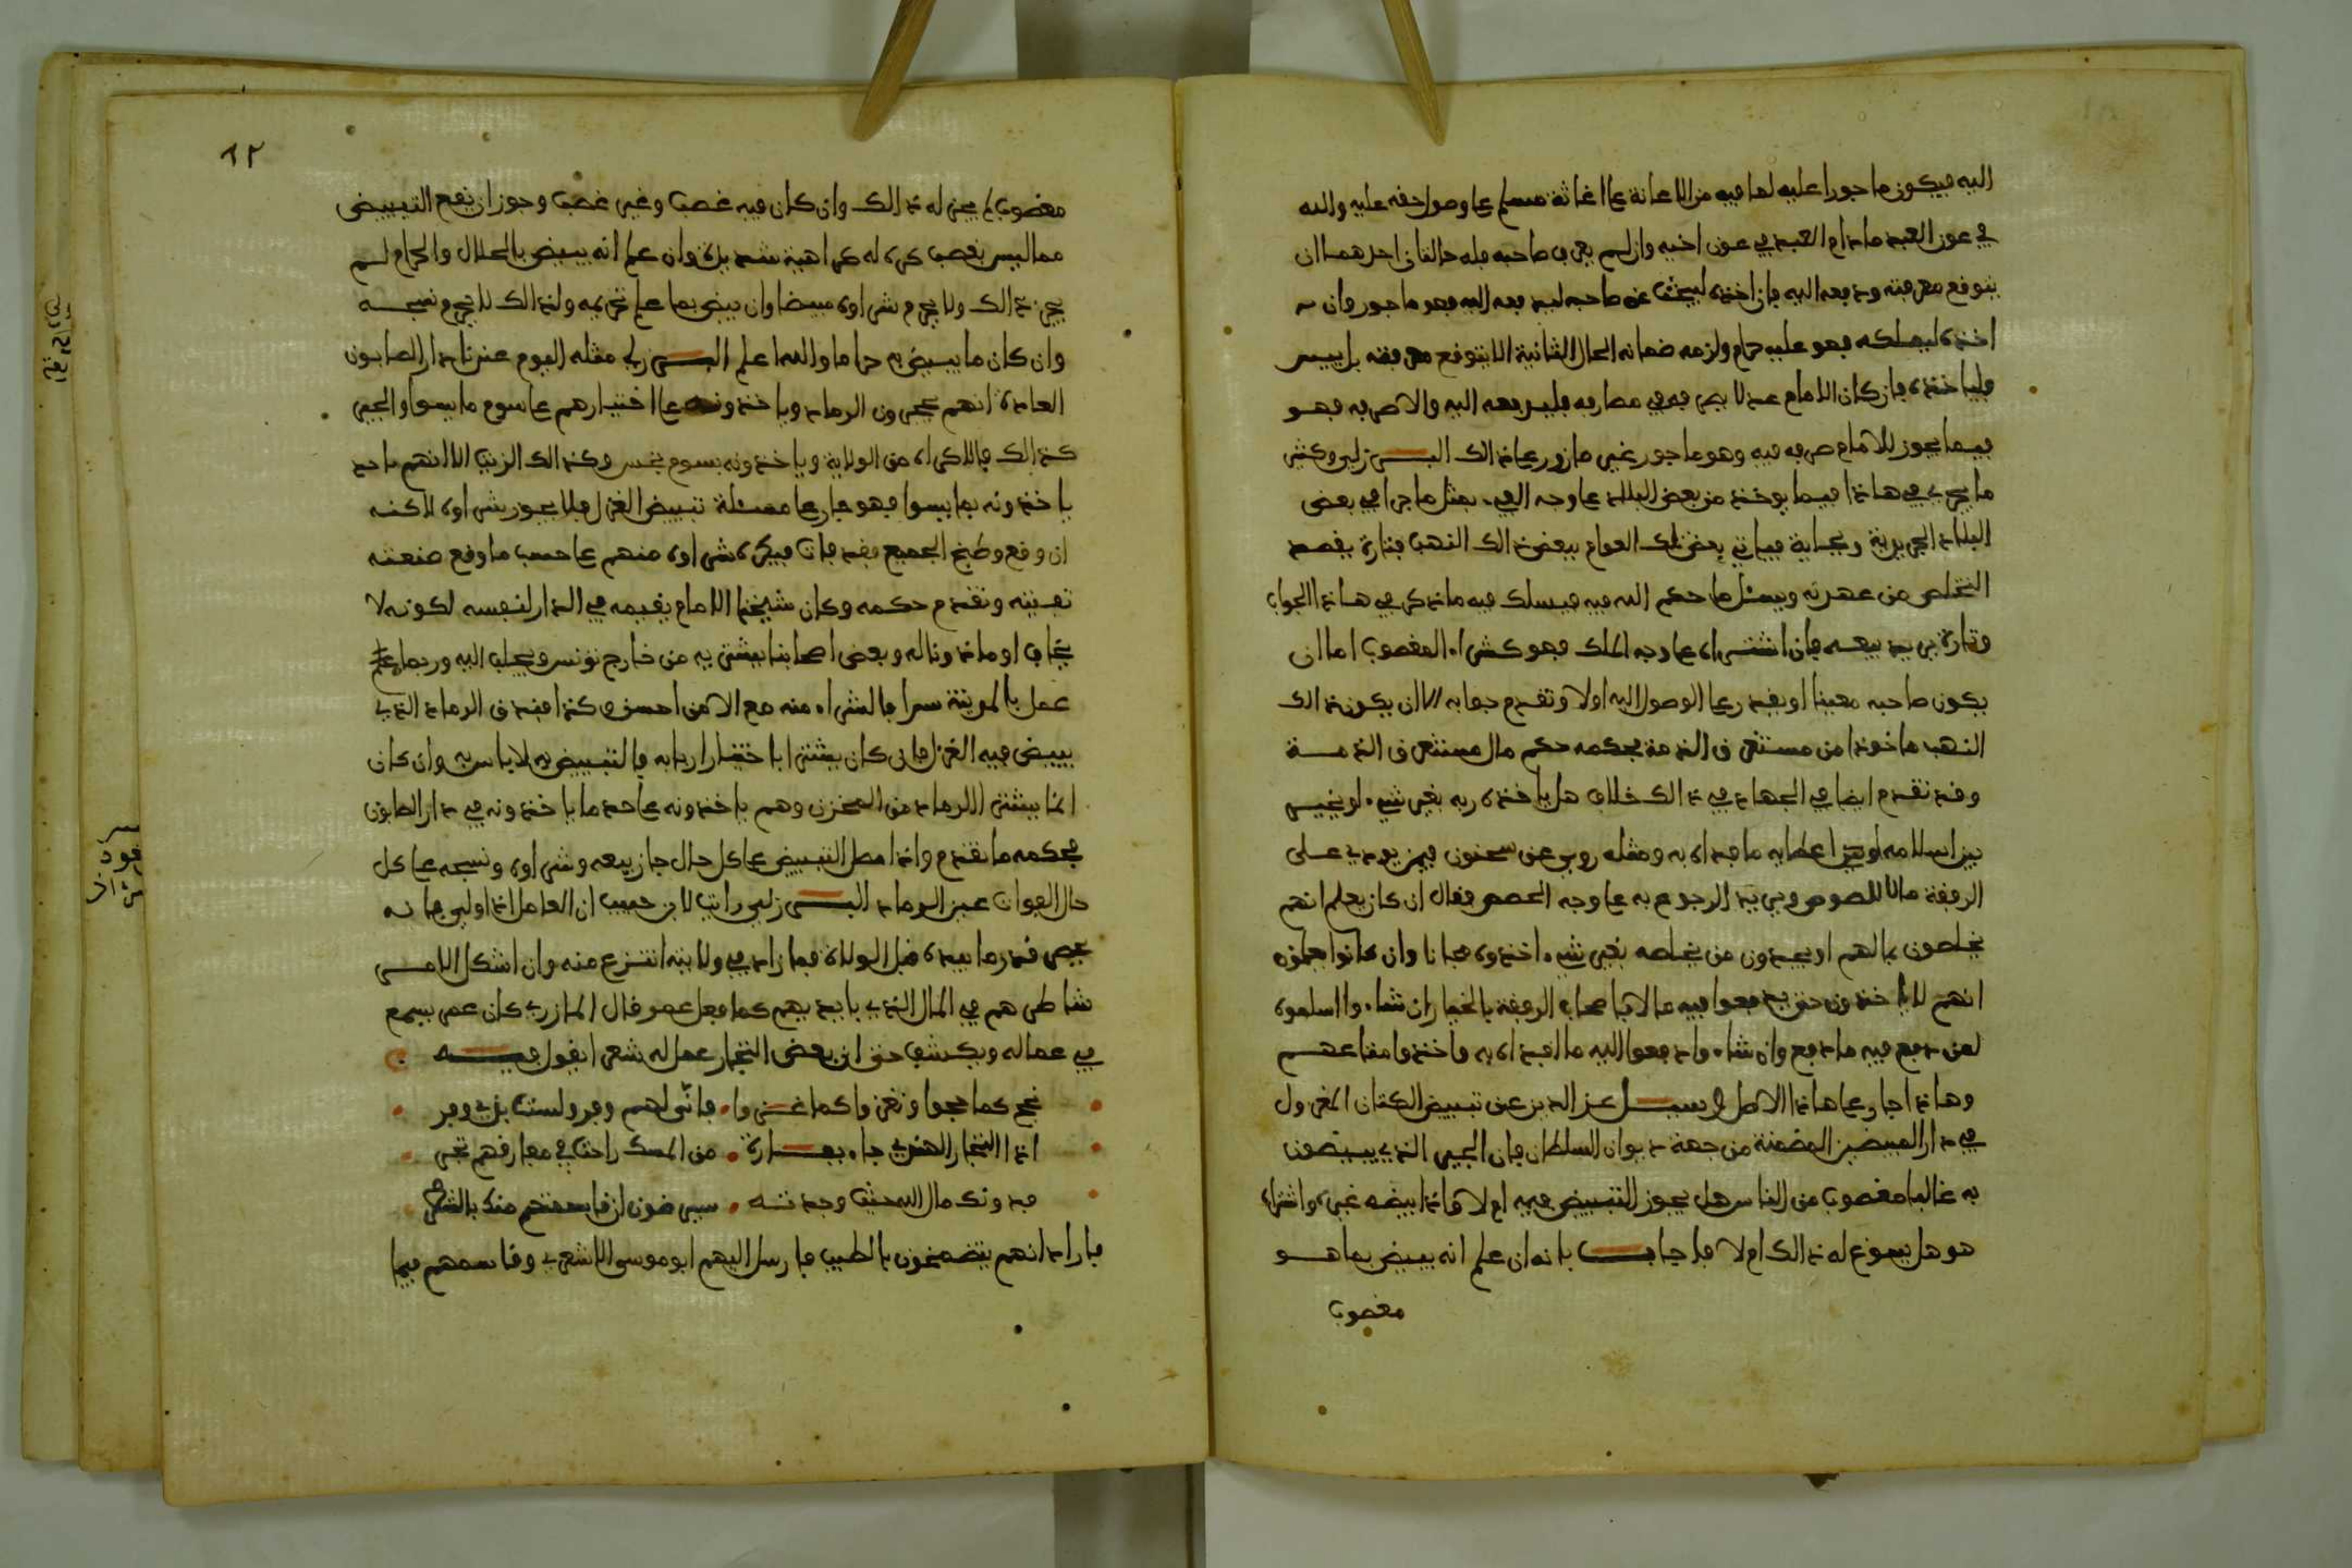 اليه فيكون ماجورا عليه لما فيه من الاعانة على اغاثة مسلم على وصول حقه عليه والله
في عون العبد ما دام العبد في عون اخيه وان لم يعرف صاحبه فله حالتان احداهما ان
يتوقع معرفته ودفعه اليه فان اخذه ليبحث عن صاحبه ليدفعه اليه فهو ماجور وان
اخذه ليملكه فهو عليه حرام ولزمه ضمانه الحال الثانية الا يتوقع معرفته بل ييس
فلياخذه فان كان الامام عدلا يصرفه في مصارفه فليدفعه اليه والا صرفه فهو
فيما يجوز للامام صرفه فيه وهو ماجور غير مازور على ذالك البرزلي وكثير
ما يجري في هاذا فيما يوخذ من بعض البلاد على وجه الفيء بمثل ما جرا في بعض
البلاد الجريدية وبجاية فياتي بعض تلك العوام ببعض ذالك النهب فتارة يقصد
التخلص من عهدته ويسئل ما حكم الله فيه فيسلك فيه ما ذكر في هاذا الجواب
وتارة يريد بيعه فان اشتراه على وجه الملك فهو كشراء المغصوب اما ان
يكون صاحبه معينا او يقدر على الوصول اليه اولا وتقدم جوابه الا ان يكون ذالك
النهب ماخوذا من مستغرق الذمة فحكمه حكم مال مستغرق الذمة
وقد تقدم ايضا في الجهاد في ذالك خلاف هل ياخذه ربه بغير شيء او يخير
بين اسلامه او بين اعطايه ما فداه به ومثله روي عن سحنون فيمن يودي على
الرفقة مالا للصوص ويريد الرجوع به على وجه الحصص فقال ان كان يعلم انهم
يخلصون بمالهم او يجدون من يخلصه بغير شيء اخذوه مجانا وان كانوا
انهم لا ياخذون حتى يدفعوا فيه مالا فاصحاب الرفقة بالخيار ان شاءوا اسلموه
لمن دفع فيه ما دفع وان شاءوا دفعوا اليه ما افداه به واخذوا متاعهم
وهاذا جار على هاذا الاصل وسئل عز الدين عن تبييض الكتان المغزول
في دار المبيضين المضمنة من جهة ديوان السلطان فان الجير الذي يبيضون
به غالبا مغصوب من الناس هل يجوز التبييض فيه ام لا فاذا بيضه غيره واشتراه
هو هل يسوغ له ذالك ام لا فاجاب بانه ان علم انه يبيض بما هو
مغصوب
٦٢
مغصوب لم يجز له ذالك وان كان فيه غصب وغير غصب وجوز ان يقع التبييض
مما ليس بغصب كره له كراهية شديدة وان علم انه يبيض بالحلال والحرام لم
يجز ذالك ولا يحرم شراوه مبيضا وان بيض بما علم تحريمه ولذالك لا يحرم نسجه
وان كان ما يبيض به حراما والله اعلم البرزلي مثله اليوم عندنا دار الصابون
العادة انهم يجيرون الرماد وياخذونه على اختيارهم على سوم ما يسوا والجير
كذالك فالاكراه من الولاية وياخذونه بسوم بخس وكذالك الزيت الا انهم
ياخذونه بما يسوا فهو جار على مسئلة تبييض الغزل فلا يجوز شراوه لاكنه
ان وقع وطبخ الجميع فقد فات فيكره شراوه منهم على حسب ما وقع صنعته
تفيته وتقدم حكمه وكان شيخنا الامام يقيمه في الدار لنفسه لكونه لا
يخاف او ماذونا له وبعض اصحابنا يشتريه من خارج تونس ويجلب اليه وربما
عمل بالمدينة سرا فالشراء منه مع الامن احسن وكذا عندي في الرماد الذي
يبيض فيه الغزل فان كان يشترا باختيار اربابه فالتبييض به لا باس به وان كان
انما يشترا الرماد من المخزن وهم ياخذونه على حد ما ياخذونه في دار الصابون
فحكمه ما تقدم واذا حصل التبييض على كل حال جاز بيعه وشراوه ونسجه على كل
حال لفوات عين الرماد البرزلي رايت لابن حبيب ان العامل اذا ولي فانه
يحصر قدر ما بيده قبل الولاة فما زاد في ولايته انتزع منه وان اشكل الامر
شاطرهم في المال الذي بايديهم كما فعل عمر قال المازري كان عمر يسمع
في عماله ويكشف حتى ان بعض التجار عمل له شعرا يقول فيه
نحج كما حجوا ونغزوا كما غزوا فانى لهم وفر ولست بذي وفر
اذا التاجر الهندي جاء بفارة من المسك راحت في مفارقهم تجري
فدونك مال الله حيث وجدته سيرضون ان قاسمتهم منك بالشطر
فاراد انهم يتضمخون بالطيب فارسل اليهم ابو موسى الاشعري وقاسمهم فيما